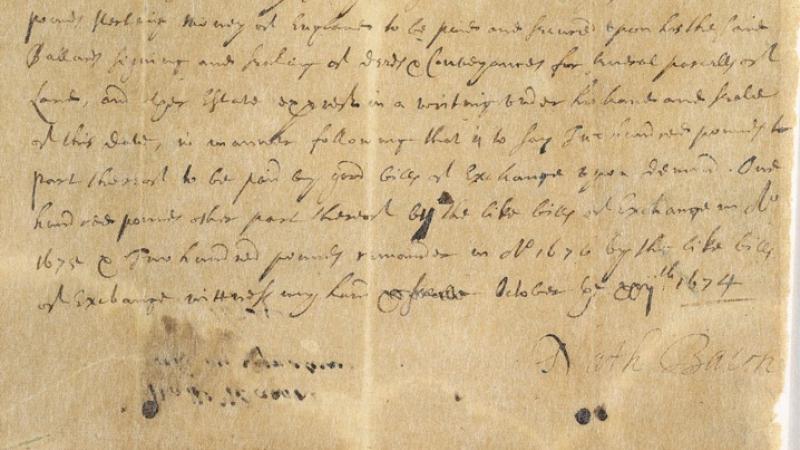 pounds sterling money of England to be paid and secured upon his the said
Ballards signing and sealing of deeds & Conveyances for severall parcells of
Land, and other Estate exprest in a writing under his hand and seale
of this date, in manner following that is to say Two hundred pounds
part thereof to be paid by good bills of Exchange upon demand. One
hundred pounds other part thereof by the like bills of Exchange in Ao
1675 & Two hundred pounds remainder in Ao 1676 by the like bills
of Exchange witness my hand & seale October ye 1674
Nath Bacon